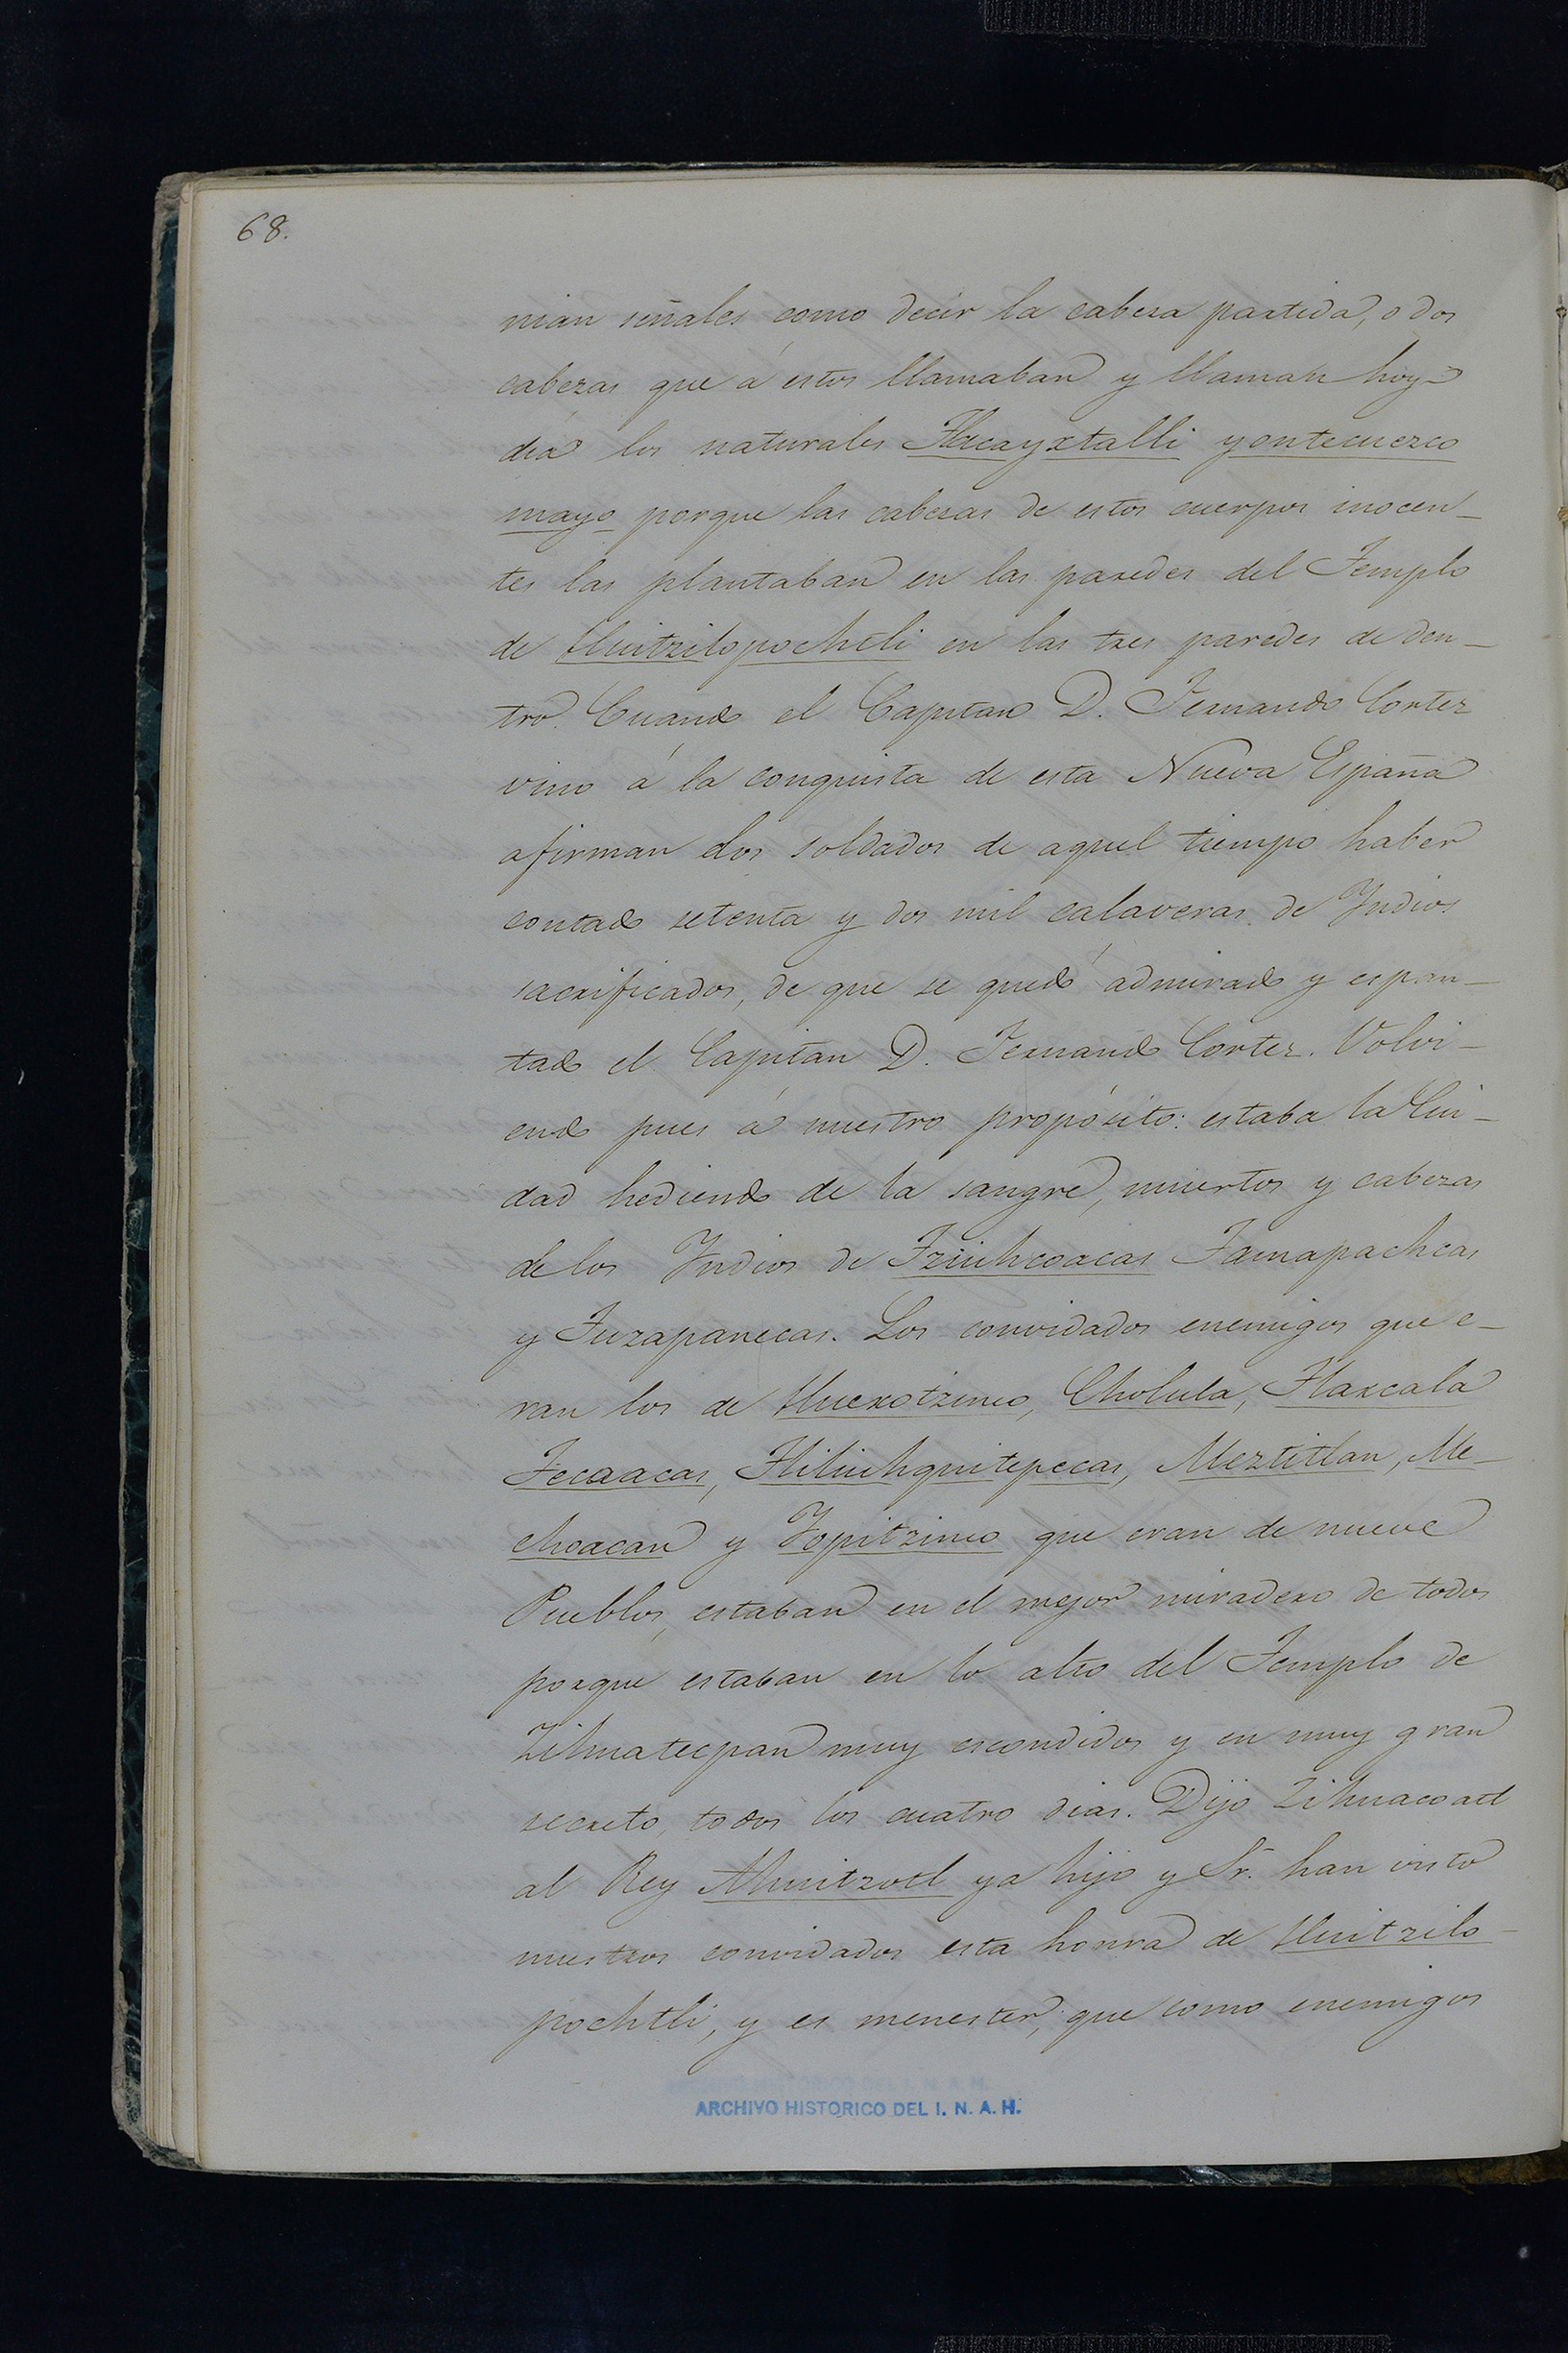 68.
nian señales como decir la cabesa partida, o dos
cabezas que á estos llamaban y llaman hoy
dia los naturales Tlacayxtalli yontecuezco
mayo porque las cabesas de estos cuerpos inocen-
tes las plantaban en las paredes del Templo
de Huitzilopochtli en las tres paredes de den-
tro. Cuando el Capitan D. Fernando Cortez
vino á la conquista de esta Nueva España
afirman los soldados de aquel tiempo haber
contado setenta y dos mil calaveras de Yndios
sacrificados, de que se quedó admirado y espan-
tado el Capitan D. Fernando Cortez. Volvi-
endo pues á nuestro propósito: estaba la Ciu-
dad hediendo de la sangre, muertos y cabezas
de los Yndios de Tziuhcoacas Tamapachcas
y Tuzapanecas. Los convidados enemigos que e-
ran los de Huexotzinco, Cholula, Tlaxcala
Tecoacas, Tliliuhquitepecas, Meztitlan, Me-
choacan y Yopitzinco que eran de nueve
Pueblos, estaban en el mejor miradero de todos
porque estaban en lo alto del Templo de
Zihuatecpan muy escondidos y en muy gran
secreto, todos los cuatro dias. Dijo Zihuacoatl
al Rey Ahuitzotl ya hijo y Sr. han visto
nuestros convidados esta honra de Huitzilo-
pochtli, y es menester, que como enemigos
ARCHIVO HISTORICO DEL I. N. A. H.